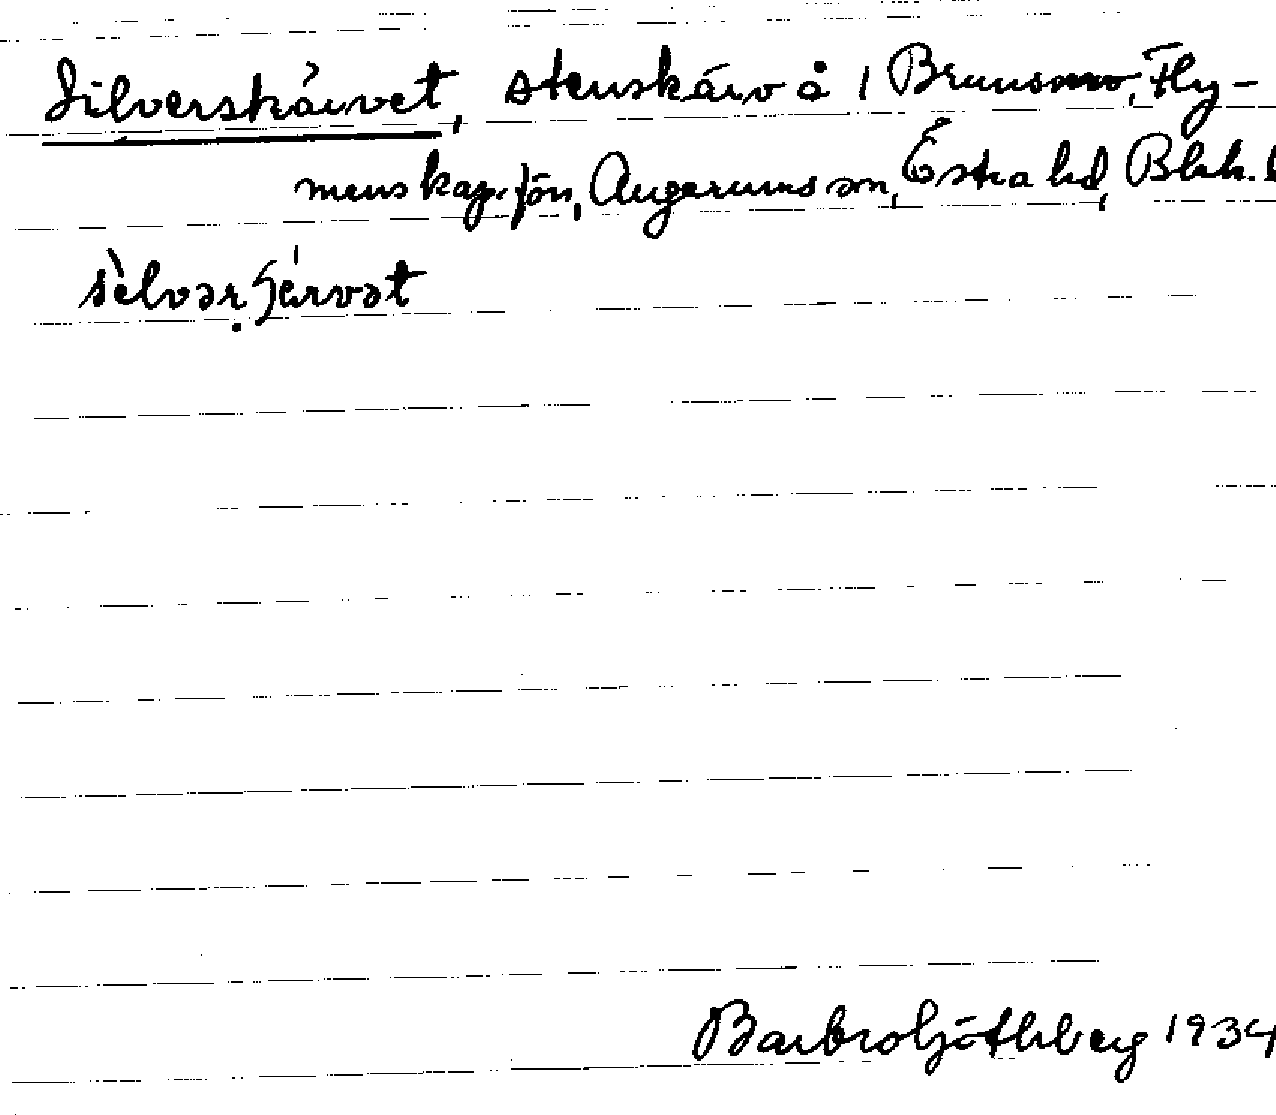 Silverskärvet, stenskärv å i Brunsmo, Fly-
menskapsjön, Augerums sn, Östra hd, Blek. l
Barbro Göthberg 1934